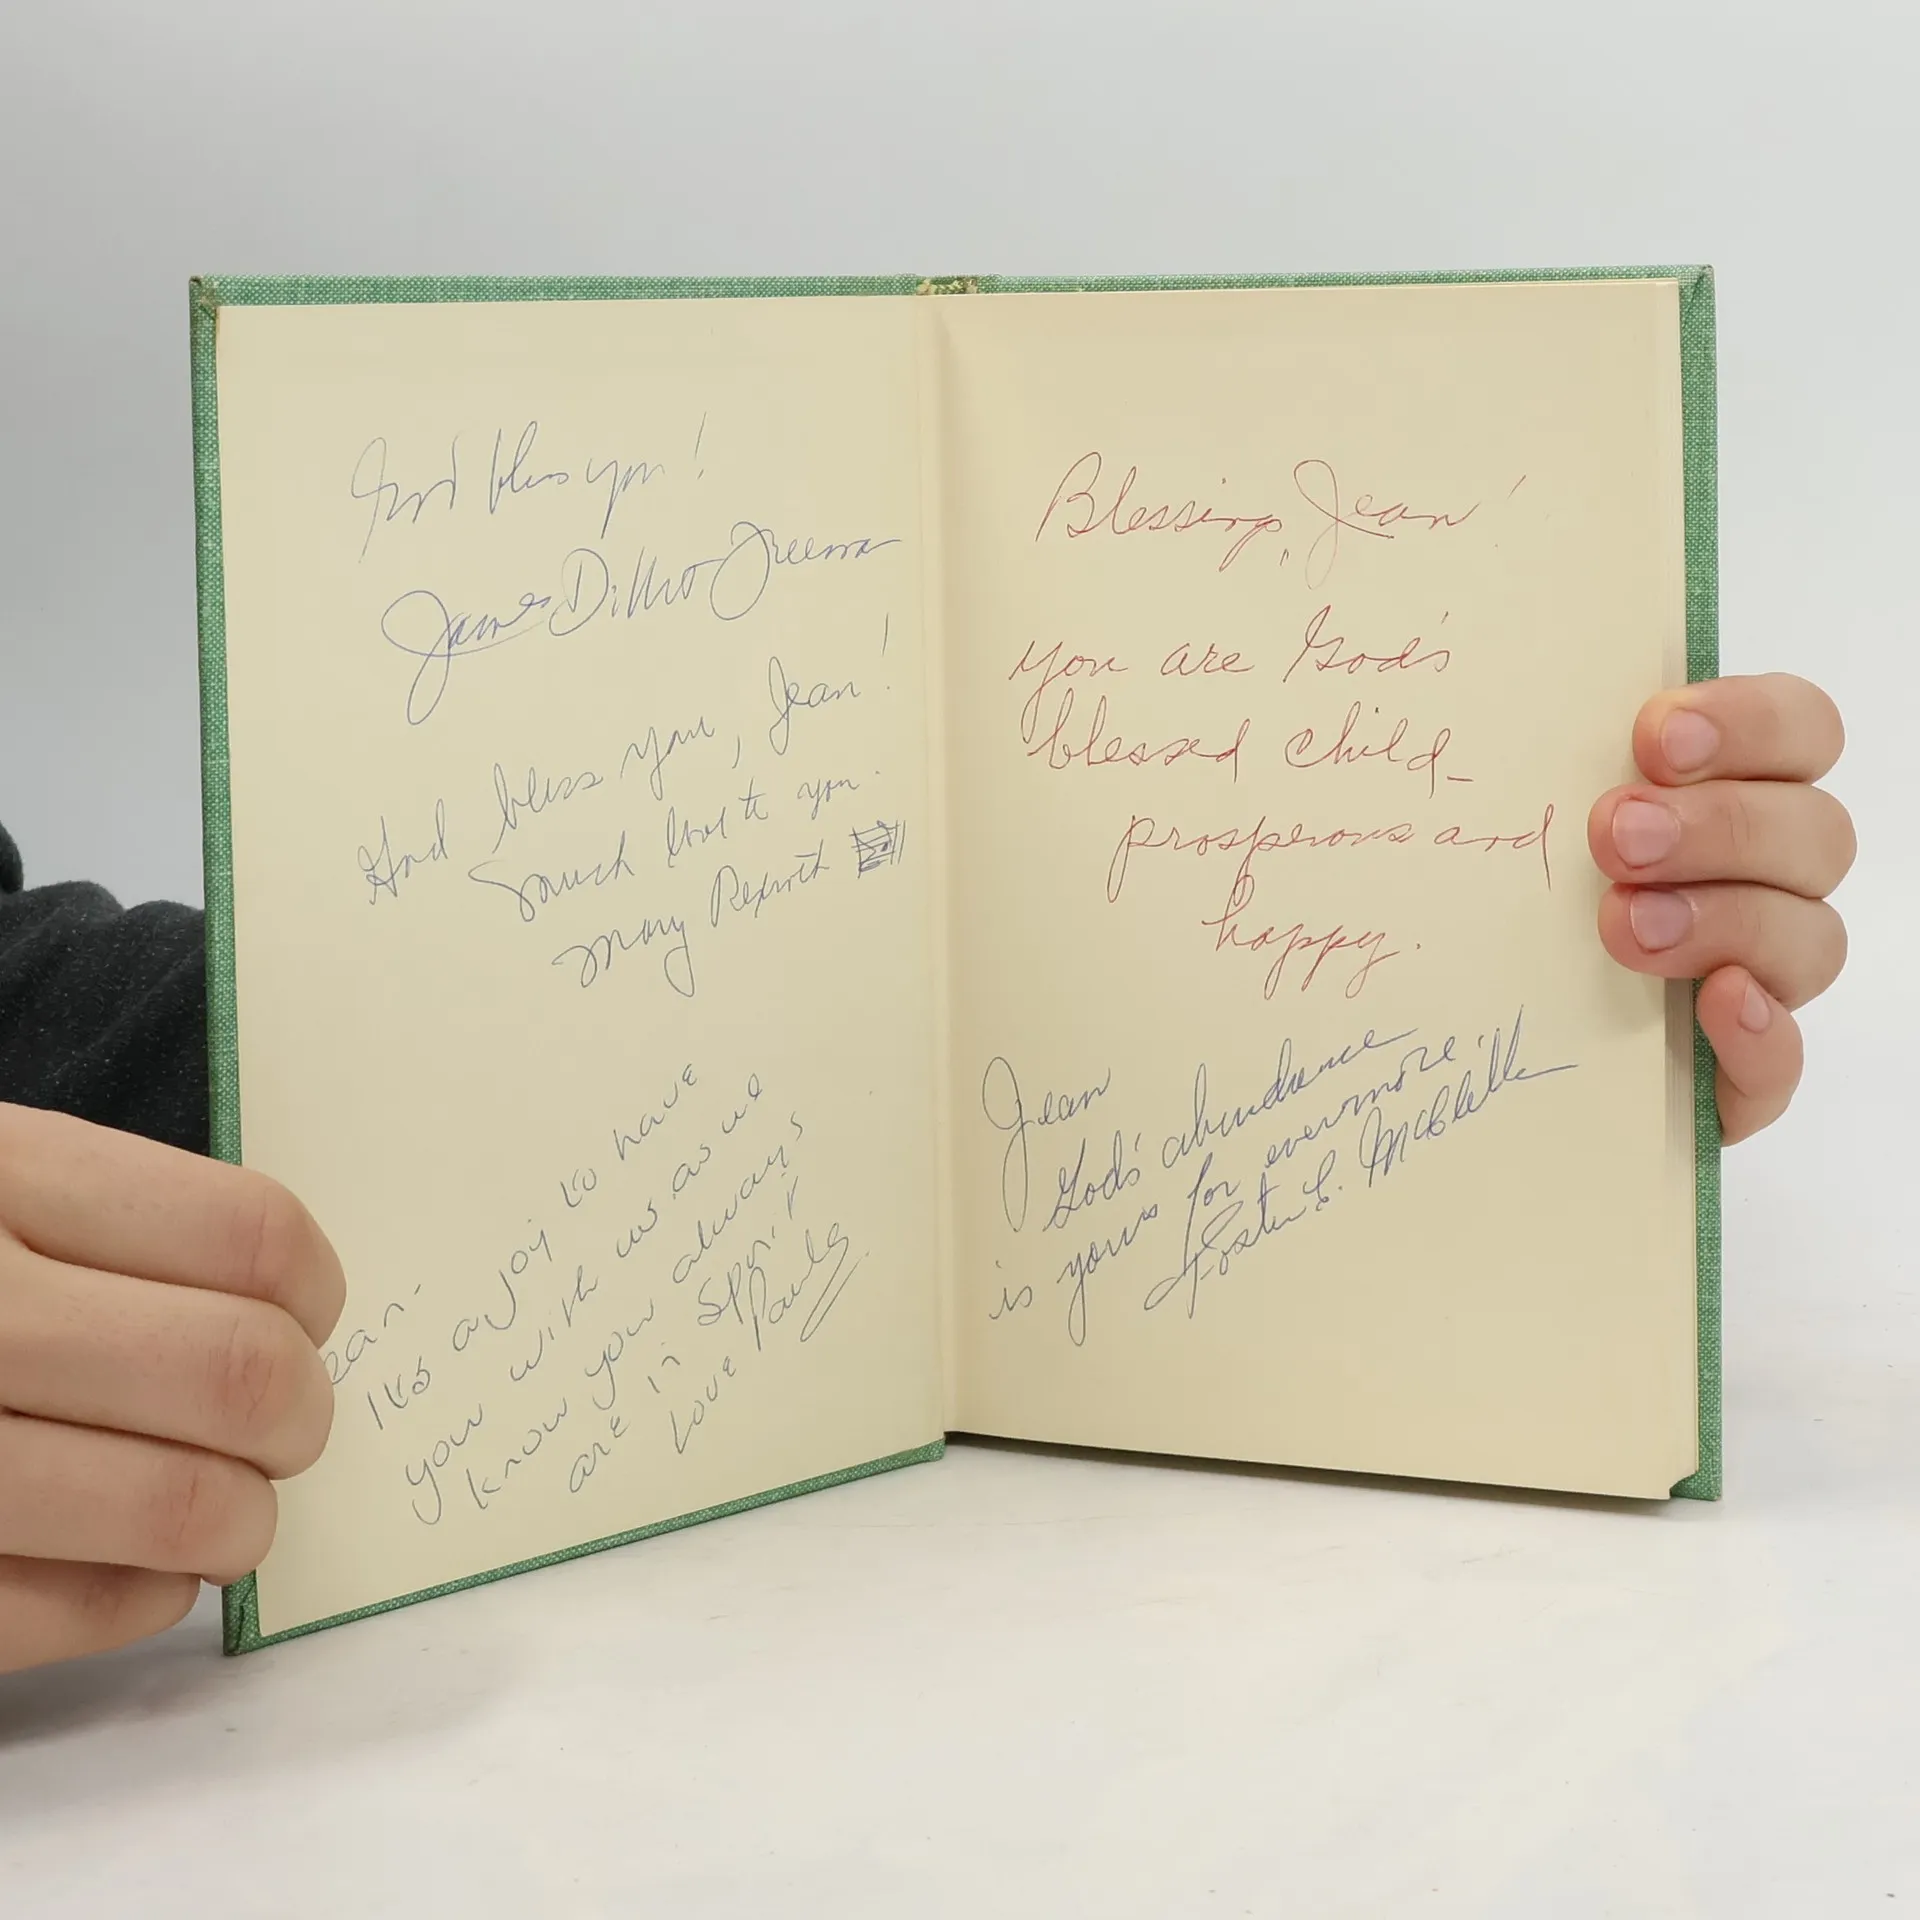 God bless you!
James Dillet Freeman
God bless you, Jean!
Much love to you.
Mary Rexroth
ean-
It's a joy to have
you with us as we
know you always
are in Spirit
Love Paula
Blessings, Jean!
you are God's
blessed child-
prosperous and
happy.
Jean
God's abundance
is yours for evermore.
Foster C. McClellan